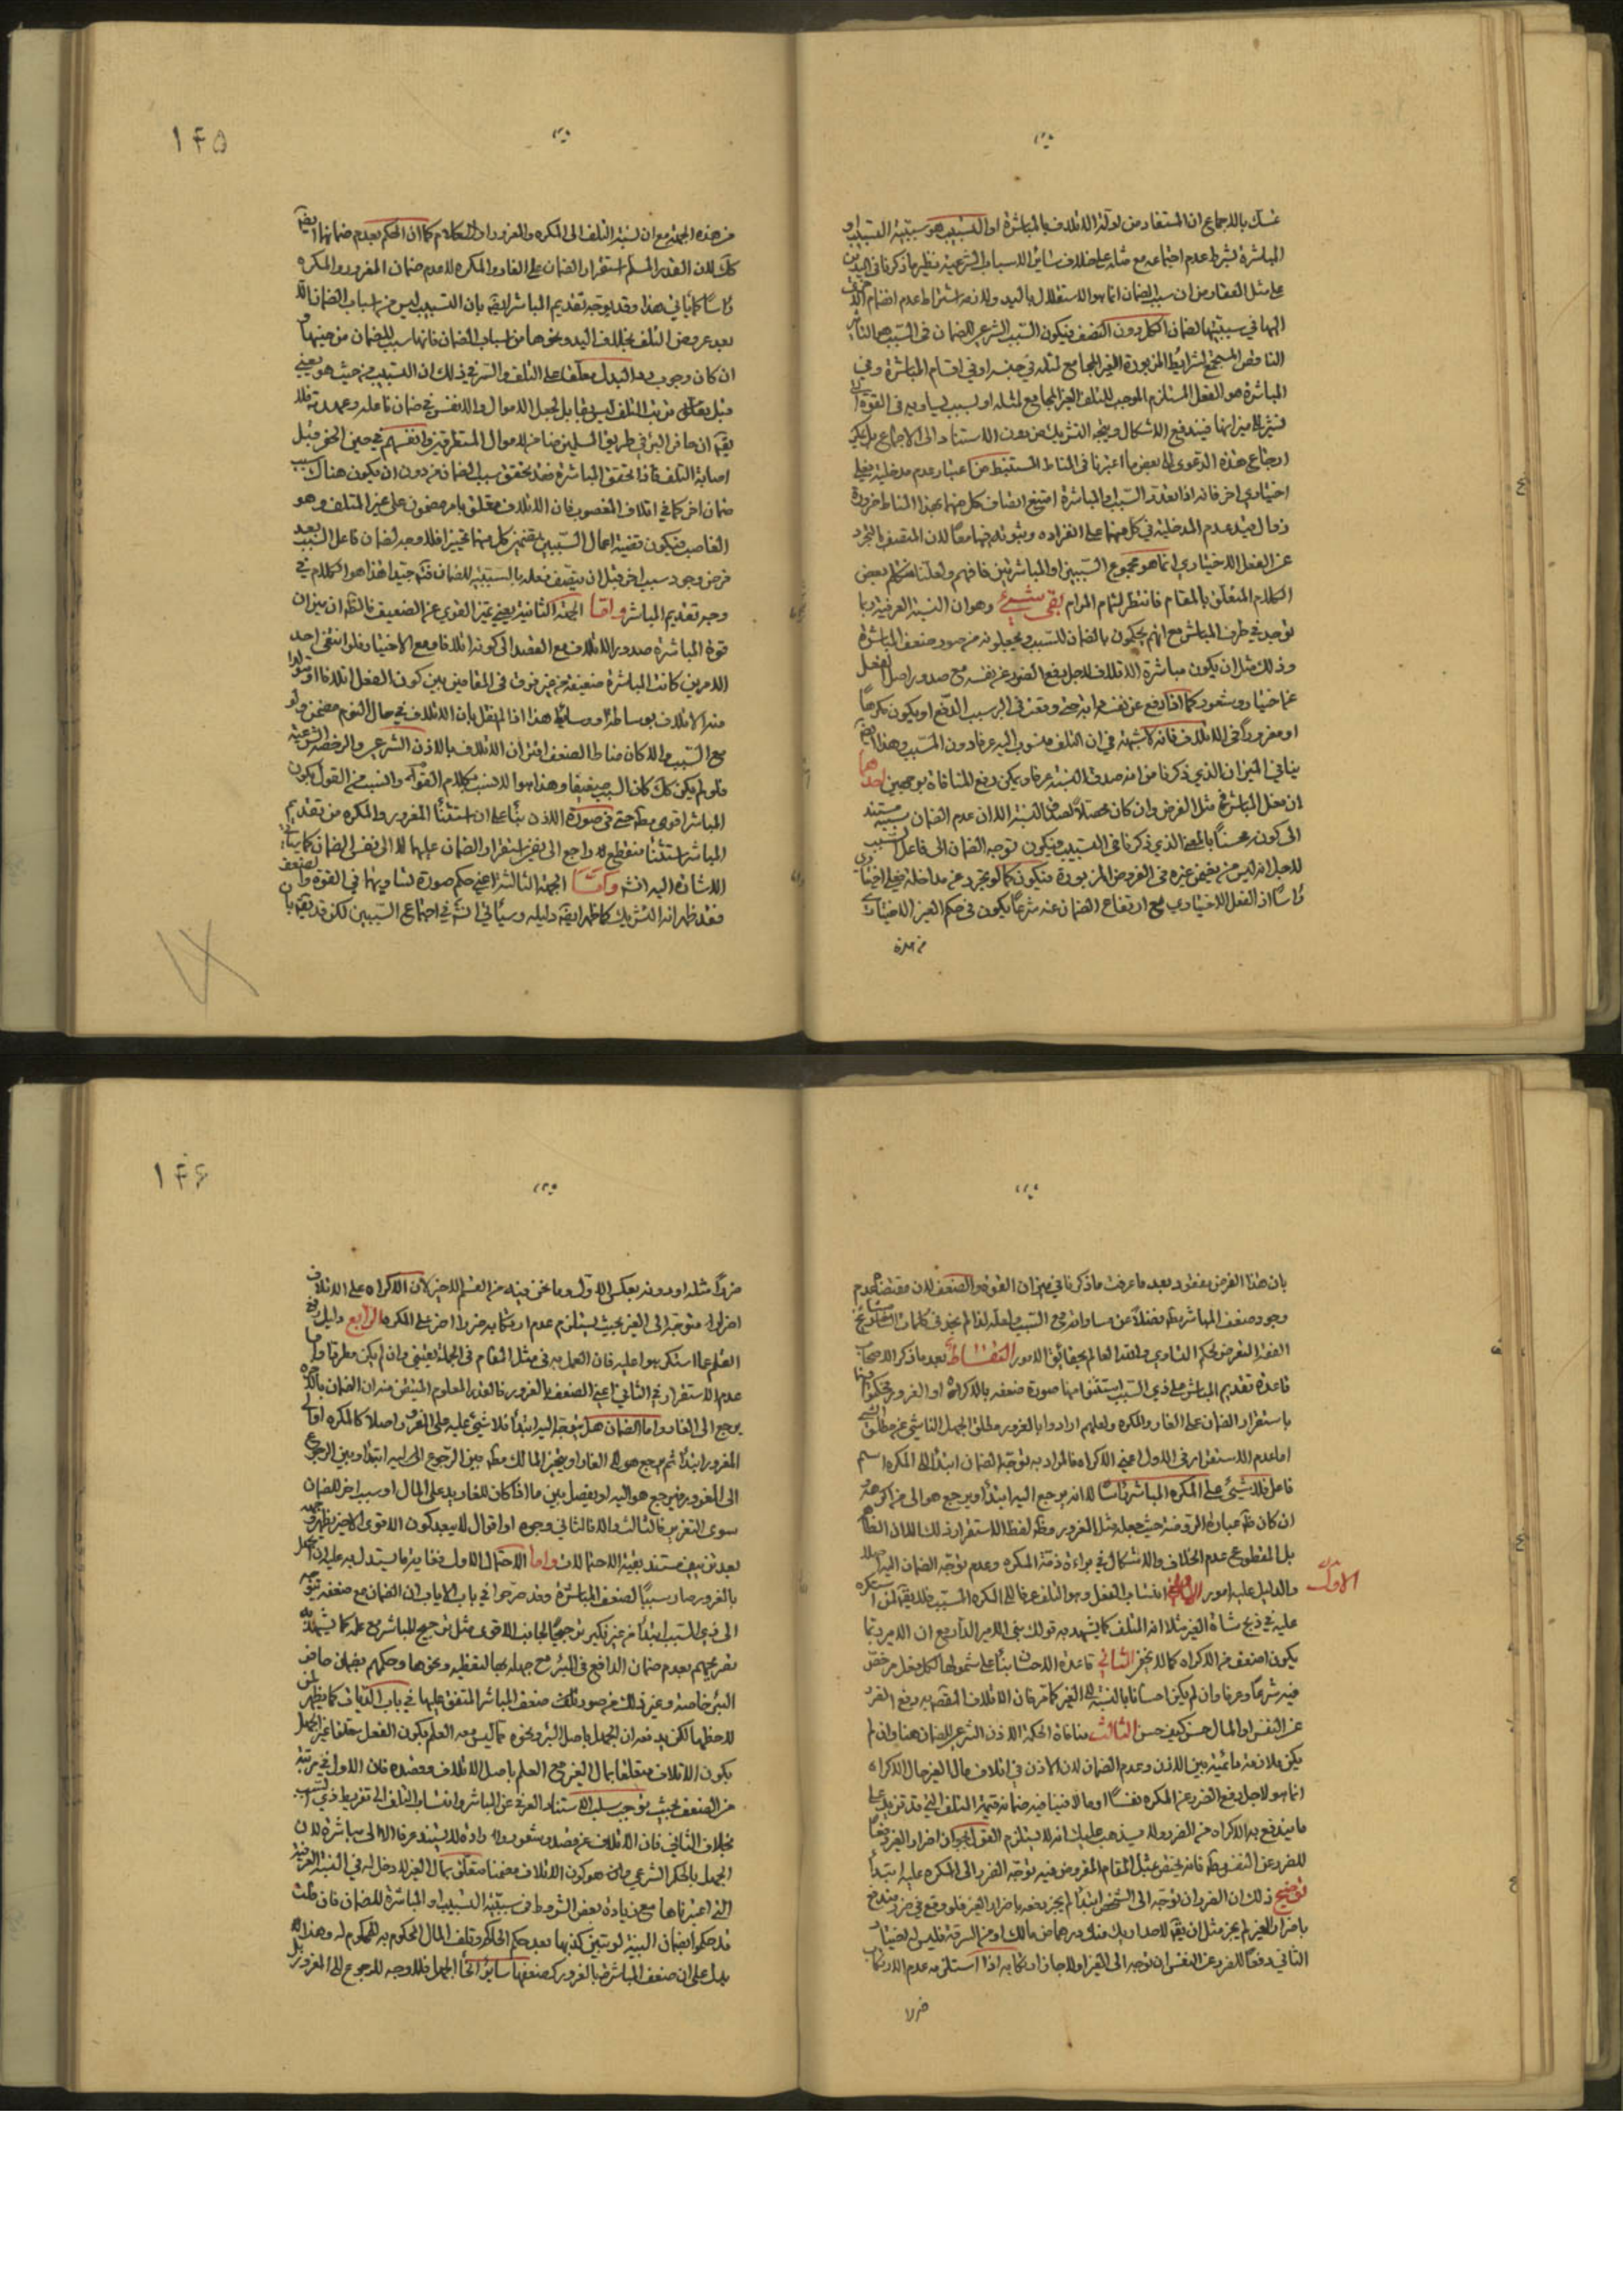 تمسك بالاجماع ان المستفاد من ادلة الاتلاف بالمباشرة او التسبيب هو سببية التسبيب و
المباشرة بشرط عدم اجتماعه مع مثله على خلاف سائر الاسباب الشرعية نظير ما ذكرنا في اليد من
على مثل العقار من ان سبب الضمان انما هو الاستقلال باليد ولازمه اشتراط عدم انضمام
اليها في سببيتها لضمان الكل دون النصف فيكون السبب الشرعي للضمان في التسبيب هو التأثير
الناقص المستجمع لشرائط المزبورة الغير المجامع لمثله في جنسه او في اقسام المباشرة وفي
المباشرة هو الفعل المستلزم الموجب للتلف الغير المجامع لمثله او لسبب يساويه في القوة
فيندفع الاشكال ويتجه التشريك من دون الاستناد الى الاجماع بل يمكن
ارجاع هذه الدعوى الى بعض ما اعتبرنا في المناط المستنبط من اعتبار عدم مدخلية فعل
اختياري اخر فانه اذا تعدد السبب او المباشرة امتنع اتصاف كل منهما بهذا المناط ضرورة
زوال قيد عدم المدخلية في كل منهما على انفراده وثبوته فيهما معا لان المتصف بالتجرد
عن الفعل الاختياري انما هو مجموع السببين او المباشرتين فافهم ولعلنا نتكلم بعض
الكلام المتعلق بالمقام فانتظر لتمام المرام بقي شيء وهو ان النسبة العرفية ربما
توجد في طرف المباشر مع انهم يحكمون بالضمان للسبب ويجعلونه من صور ضعف المباشرة
وذلك مثل ان يكون مباشرة الاتلاف لاجل دفع الضرر عن نفسه مع صدور اصل الفعل
عن اختيار وشعور كما اذا دفع عن نفسه وقعت في البر سبب الدفع او يكون مكرها
او مغرورا في الاتلاف فانه لا شبهة في ان التلف منسوب اليه عرفا دون المسبب وهذا ايضا
ينافي الميزان الذي ذكرنا من انه صدق النسبة عرفا ويمكن دفع المنافاة بوجهين احدهما
ان فعل المباشر في مثل الفرض وان كان محصلا لصدق النسبة الا ان عدم الضمان بسببه مستند
الى كونه محسنا بالمعنى الذي ذكرنا في التسبيب فيكون توجه الضمان الى فاعل السبب
لاجل انه ليس من يضمن غيره في الفروض المزبورة فيكون كما لو تجرد عن مداخلة فعل اختياري
رأسا اذ الفعل الاختياري مع ارتفاع الضمان عنه شرعا يكون في حكم الغير الاختياري
من هذه
١٤٥
من هذه الجهة مع ان نسبة التلف الى المكره والمغرور اول الكلام كما ان الحكم بعدم ضمانهما ايضا
كك لان القدر المسلم استقرار الضمان على الغار والمكره لا عدم ضمان المغرور والمكره
رأسا كما يأتي هذا وقد يوجه تقديم المباشر ايضا بان التسبيب ليس من اسباب الضمان الا
بعد عروض التلف بخلاف اليد ونحوها من اسباب الضمان فانها سبب للضمان من حينها و
ان كان وجوب رد البدل معلقا على التلف والسر في ذلك ان التسبيب من حيث هو يعني
قبل تعقب ترتب التلف ليس بقابل لجعل الاموال والانفس في ضمان فاعله وعهدته فلا
يقال ان حافر البئر في طريق المسلمين ضامن لاموال المتطرقين وانفسهم في حين الحفر قبل
اصابة التلف فاذا تحقق المباشرة فقد تحقق سبب الضمان من دون ان يكون هناك سبب
ضمان اخر كما في اتلاف المغصوب فان الاتلاف متعلق بامر مضمون على غير المتلف وهو
الغاصب فيكون قضية اعمال السببين تضمين كل منهما تخييرا فلا وجه لضمان فاعل السبب بعد
فرض وجود سبب اخر قبل ان يتصف فعله بالسببية للضمان فتدبر جيدا هذا هو الكلام في
وجه تقديم المباشر واما الجهة الثانية يعني تميز القوي عن الضعيف فالظاهر ان ميزان
قوة المباشرة صدور الاتلاف مع القصد الى كونه اتلافا ومع الاختيار فلو انتفى احد
الامرين كانت المباشرة ضعيفة من غير فرق في المقامين بين كون الفعل اتلافا او متولدا
منه الاتلاف بوساطة او وسائط هذا اذا لم نقل بان الاتلاف في حال النوم مضمن ولو
مع السبب والا كان مناط الضعف اقتران الاتلاف بالاذن الشرعي والرخصة الشرعية
فلو لم يكن كك كان السبب ضعيفا وهذا هو الانسب بكلام القوم والنسب من القول بكون
المباشر اقوى مطلقا حتى في صورة الاذن بناء على ان استثناء المغرور والمكره من تقديم
المباشر استثناء منقطع لا راجع الى نفي استقرار الضمان عليهما لا الى نفس الضمان كما يأتي
الاشارة اليه انشاء واما الجهة الثالثة اعني حكم صورة تساويهما في القوة والضعف
فقد ظهر انه التشريك كما ظهر ايضا دليله وسيأتي انشاء في اجتماع السببين لكن قد يقال بان
بان هذا الفرض مفقود بعد ما عرفت ما ذكرنا في ميزان القوة والضعف لان مقتضاه عدم
وجود ضعف المباشر مطلقا فضلا عن مساواته مع السبب ولعله لذا لم يجز في كلمات المشايخ
الفقه التعرض لحكم التساوي والله العالم بحقايق الامور السادس بعد ما ذكر الاصحاب
قاعدة تقديم المباشر على ذي السبب استثنوا منها صورة ضعفه بالاكراه او الغرور فحكموا فيهما
باستقرار الضمان على الغار والمكره ولعلهم ارادوا بالغرور مطلق الجهل الناشي عن مطلق السبب
اما عدم الاستقرار في الاول اعني الاكراه فالمراد به توجه الضمان ابتداء الى المكره اسم
فاعل فلا شيء على المكره المباشر رأسا لا انه يرجع اليه ابتداء ويرجع هو الى من اكرهه
ان كان عبارة الروضة حيث جعله مثل الغرور لفظ الاستقرار ذلك لان الظاهر
بل المقطوع عدم الخلاف والاشكال في براءة ذمة المكره وعدم توجه الضمان اليه اصلا
والدليل عليه امور الاول انتساب الفعل وهو التلف عرفا الى المكره المسبب فلا يقال لمن استكره
الاول
عليه في ذبح شاة الغير مثلا انه المتلف كما يشهد به قولك بنى الامير الدار مع ان الامر ربما
يكون اضعف من الاكراه كما لا يخفى الثاني قاعدة الاحسان بناء على شمولها لكل فعل مرخص
فيه شرعا وعرفا وان لم يكن احسانا بالنسبة الى الغير كما مر فان الاتلاف المقصود به دفع الضرر
عن النفس او المال حسن كيف حسن الثالث منافاة الحكمة الاذن الشرعي للضمان هنا وان لم
يكن ملازمة دائمية بين الاذن وعدم الضمان لان الاذن في اتلاف مال الغير حال الاكراه
انما هو لاجل دفع الضرر عن المكره نفسا او مالا فيما فيه ضمانه قيمة التلف التي قد تزيد على
ما يندفع به الاكراه من الضرر ولا يذهب عليك انه لا يستلزم القول بجواز اضرار الغير دفعا
للضرر عن النفس مطلقا فانه يختص بمثل المقام المفروض فيه توجه الضرر الى المكره عليه ابتداء
توضيح ذلك ان الضرر ان توجه الى الشخص ابتداء لم يجز دفعه باضرار الغير فلو وقع في ضرر يندفع
باضرار الغير لم يجز مثل ان يقال لاحد اريد منك درهما من مالك او من السرقة فليس له اختيار
الثاني دفعا للضرر عن النفس ان توجه الى الغير اولا جاز ارتكابه اذا استلزم عدم الارتكاب
ضررا
١٤٦
ضررا مثله او دونه بعكس الاول وما نحن فيه من القسم الاخير لان الاكراه على الاتلاف
اضرار متوجه الى الغير بحيث يستلزم عدم ارتكابه ضررا اخر على المكره الرابع دليل رفع
القلم عما استكرهوا عليه فان العمل به في مثل المقام في الجملة يعني وان لم يكن مطردا واما
عدم الاستقرار في الثاني اعني الضعف بالغرور فالقدر المعلوم المتيقن منه ان الضمان بالاخرة
يرجع الى الغار واما الضمان هل يتوجه اليه ابتداء فلا شيء عليه على المغرور اصلا كالمكره او الى
المغرور ابتداء ثم يرجع هو الى الغار او يتخير المالك مطلقا بين الرجوع اليه ابتداء وبين الرجوع
الى المغرور فيرجع هو اليه او يفصل بين ما اذا كان للغار يد على المال او سبب اخر للضمان
سوى التغرير فالثالث والا فالثاني وجوه او اقوال لا يبعد كون الاقوى الاخير يظهر وجهه
بعد تزييف مستند بقية الاحتمالات واما الاحتمال الاول فغاية ما يستدل به عليه ان الجهل
بالغرور صار سببا لضعف المباشرة وقد صرحوا في باب الاسباب ان الضمان مع ضعفه يتوجه
الى ذي السبب ابتداء من غير نكير ترجيحا لجانب الاقوى مثل ترجيح المباشر مع علمه كما يشهد به
تصريحهم بعدم ضمان الدافع في البئر مع جهله بها لتغطيه ونحوها وحكمهم بضمان حافر
البئر خاصة وغير ذلك من صور ضعف المباشر المتفق عليها في باب الديات كما يظهر لمن
لاحظها لكن يرد ان الجهل باصل البئر ونحوه مما ليس معه العلم بكون الفعل متلفا غير الجهل
بكون الاتلاف متعلقا بمال الغير مع العلم باصل الاتلاف وقصده فان الاول في مرتبة
من الضعف بحيث يوجب سلب الاستناد العرفي عن المباشر وانتساب التلف الى تفريط ذي السبب
بخلاف الثاني فان الاتلاف عن قصد وشعور وارادة لا يستند عرفا الا الى مباشرة لان
الجهل بالحكم الشرعي وهو كون الاتلاف مضمنا متعلق بمال الغير لا دخل له في النسبة العرفية
التي اعتبرناها مع زيادة بعض الشروط في سببية التسبيب او المباشرة للضمان فان قلت
قد حكموا بضمان البينة لو تبين كذبها بعد حكم الحاكم وتلف المال المحكوم به للمحكوم له وهذا
يدل على ان ضعف المباشر بالغرور كضعفها بسائر انحاء الجهل فلا وجه للرجوع الى المغرور بل